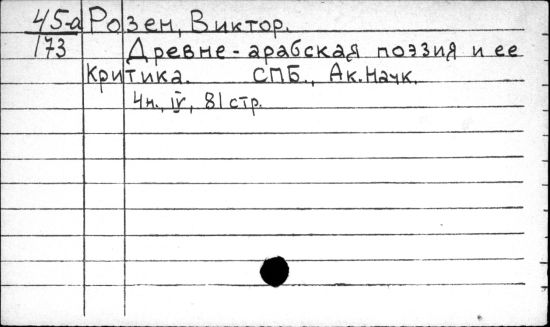 45-a Розен, Виктор.
173 Древне-арабская поэзия и ее
критика. СПБ., Ак. Наук.
4н., IV, 81 стр.